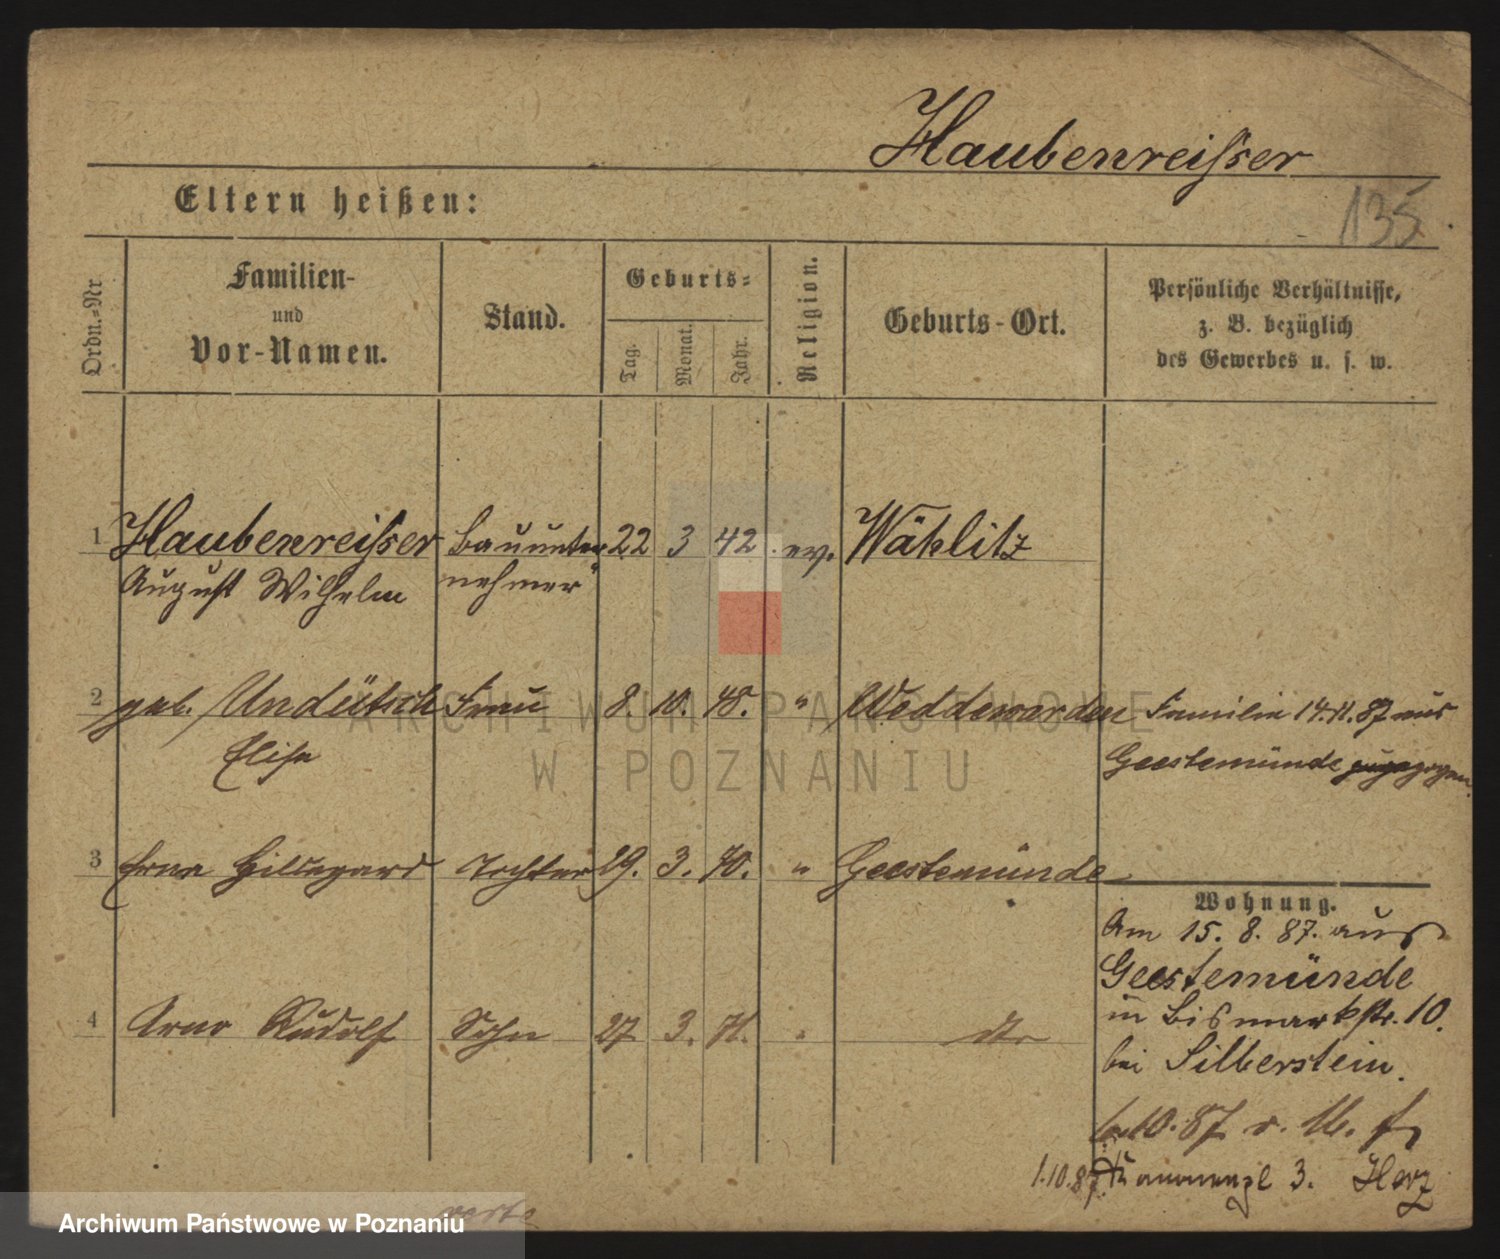 Haubenreisser
Eltern heißen:
135
Ordn.-Nr
Familien-
und
Vor-Namen.
Stand.
Geburts-
Tag.
Monat.
Jahr.
Religion.
Geburts-Ort.
Persönliche Verhältnisse,
z. B. bezüglich
des Gewerbes u. s. w.
1 Haubenreisser Bauunter 22 3 42 ev. Wählitz
August Wilhelm nehmer
2 geb. Undütsch Frau 8. 10. 48. " Weddewarden Familie 14.11.87 aus
Elise Geestemünde zugezogen.
3 Erna Hildegard Tochter 29. 3. 70. " Geestemünde
Wohnung.
Am 15. 8. 87. aus
Geestemünde
in Bismarkstr. 10.
bei Silberstein.
4 Arno Rudolf Sohn 27 3. 71. " dto
10. 87 v. U.
1.10.87 3. Herz
verte
ARCHIWUM PAŃSTWOWE
W POZNANIU
Archiwum Państwowe w Poznaniu